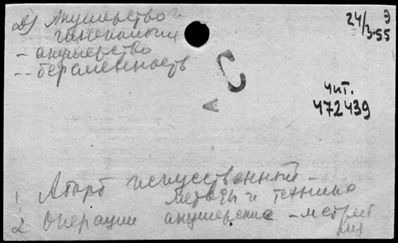 2) Акушерство и
гинекология
- акушерство
-- беременность
24/3-55
Э
С
А
Чит.
472439
1 Аборт искусственный -
методы и техника
2 Операции акушерские -